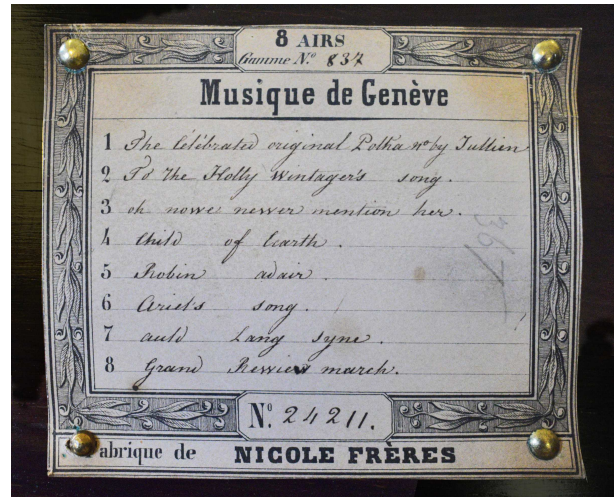 8 AIRS
Gamme No. 837
Musique de Genève
1 The Célébrated original Polka No by Jullien
2 To The Holly wintager's song.
3 oh nowe newer mention her.
4 Child of Earth.
5 Robin adair.
6 Ariel's song.
7 auld Lang syne.
8 Grand Rewiew march.
No. 24211.
abrique de NICOLE FRÈRES